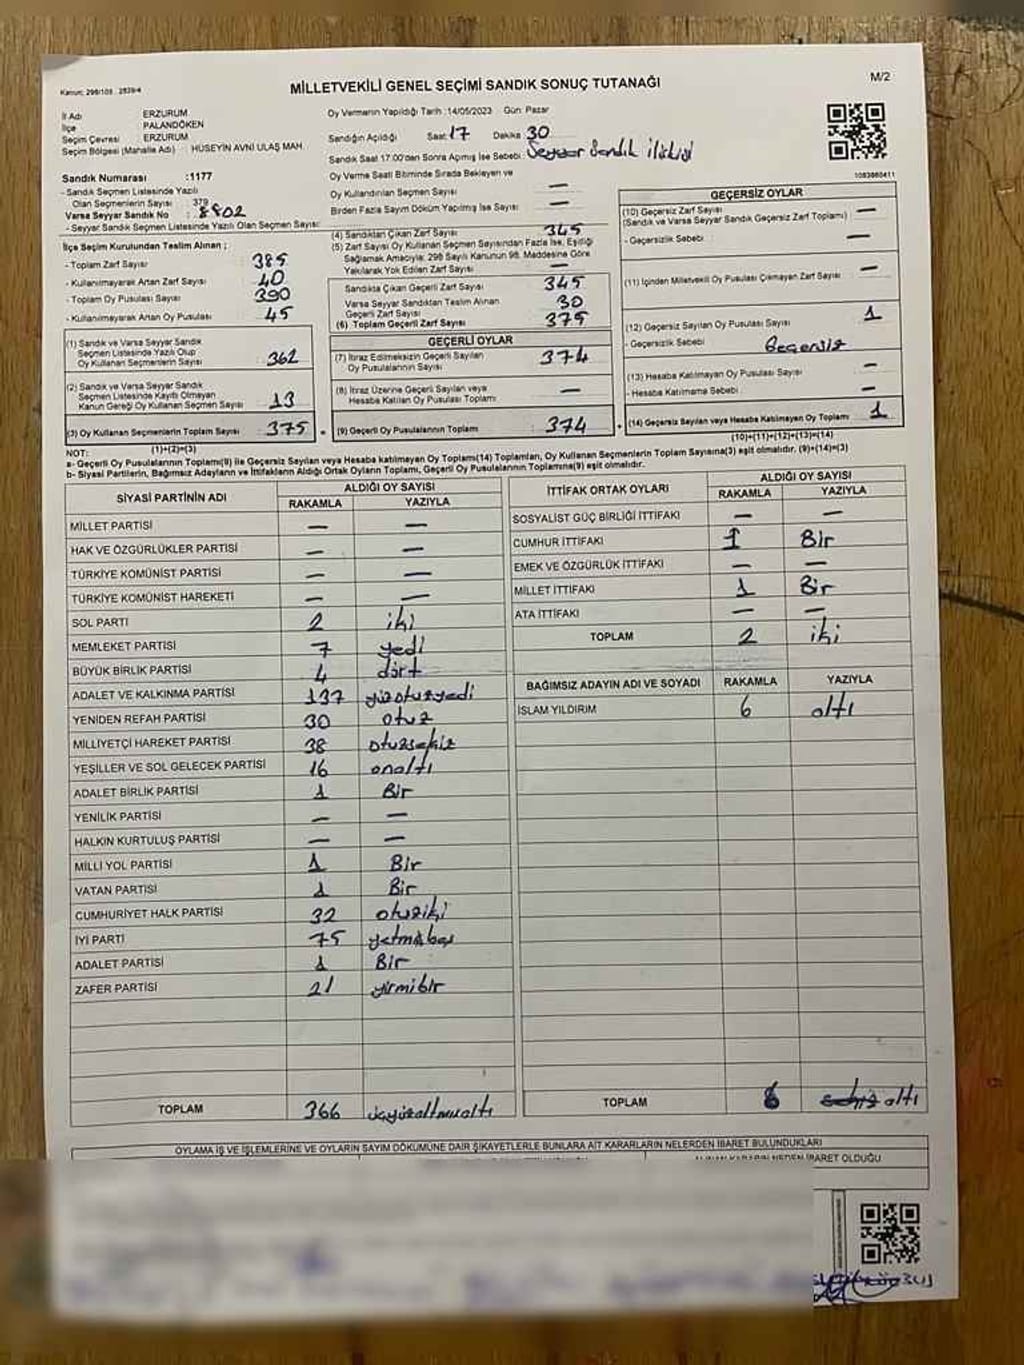 Kanun: 298/105 2839/4
MİLLETVEKİLİ GENEL SEÇİMİ SANDIK SONUÇ TUTANAĞI
M/2
İl Adı ERZURUM
İlçe PALANDÖKEN
Seçim Çevresi ERZURUM
Seçim Bölgesi (Mahalle Adı) : HÜSEYİN AVNİ ULAŞ MAH.
Sandık Numarası :1177
- Sandık Seçmen Listesinde Yazılı
Olan Seçmenlerin Sayısı : 379
Varsa Seyyar Sandık No : 8802
- Seyyar Sandık Seçmen Listesinde Yazılı Olan Seçmen Sayısı:
İlçe Seçim Kurulundan Teslim Alınan ;
- Toplam Zarf Sayısı 385
- Kullanılmayarak Artan Zarf Sayısı 40
- Toplam Oy Pusulası Sayısı 390
- Kullanılmayarak Artan Oy Pusulası 45
(1) Sandık ve Varsa Seyyar Sandık
Seçmen Listesinde Yazılı Olup
Oy Kullanan Seçmenlerin Sayısı 362
(2) Sandık ve Varsa Seyyar Sandık
Seçmen Listesinde Kayıtlı Olmayan
Kanun Gereği Oy Kullanan Seçmen Sayısı 13
(3) Oy Kullanan Seçmenlerin Toplam Sayısı 375
(1)+(2)=(3)
Oy Vermenin Yapıldığı Tarih :14/05/2023 Gün: Pazar
Sandığın Açıldığı Saat 17 Dakika 30
Sandık Saat 17.00'den Sonra Açılmış İse Sebebi: Seyyar Sandık
Oy Verme Saati Bitiminde Sırada Bekleyen ve
Oy Kullandırılan Seçmen Sayısı —
Birden Fazla Sayım Döküm Yapılmış İse Sayısı —
(4) Sandıktan Çıkan Zarf Sayısı 345
(5) Zarf Sayısı Oy Kullanan Seçmen Sayısından Fazla İse, Eşitliği
Sağlamak Amacıyla; 298 Sayılı Kanunun 98. Maddesine Göre
Yakılarak Yok Edilen Zarf Sayısı —
Sandıkta Çıkan Geçerli Zarf Sayısı 345
Varsa Seyyar Sandıktan Teslim Alınan
Geçerli Zarf Sayısı 30
(6) Toplam Geçerli Zarf Sayısı 375
GEÇERLİ OYLAR
(7) İtiraz Edilmeksizin Geçerli Sayılan
Oy Pusulalarının Sayısı 374
(8) İtiraz Üzerine Geçerli Sayılan veya
Hesaba Katılan Oy Pusulası Toplamı —
(9) Geçerli Oy Pusulalarının Toplamı 374
1083860411
GEÇERSİZ OYLAR
(10) Geçersiz Zarf Sayısı
(Sandık ve Varsa Seyyar Sandık Geçersiz Zarf Toplamı) —
- Geçersizlik Sebebi —
(11) İçinden Milletvekili Oy Pusulası Çıkmayan Zarf Sayısı —
(12) Geçersiz Sayılan Oy Pusulası Sayısı 1
- Geçersizlik Sebebi Geçersiz
(13) Hesaba Katılmayan Oy Pusulası Sayısı —
- Hesaba Katılmama Sebebi —
(14) Geçersiz Sayılan veya Hesaba Katılmayan Oy Toplamı 1
(10)+(11)+(12)+(13)=(14)
NOT:
a- Geçerli Oy Pusulalarının Toplamı(9) ile Geçersiz Sayılan veya Hesaba Katılmayan Oy Toplamı(14) Toplamları, Oy Kullanan Seçmenlerin Toplam Sayısına(3) eşit olmalıdır. (9)+(14)=(3)
b- Siyasi Partilerin, Bağımsız Adayların ve İttifakların Aldığı Ortak Oyların Toplamı, Geçerli Oy Pusulalarının Toplamına(9) eşit olmalıdır.
SİYASİ PARTİNİN ADI ALDIĞI OY SAYISI
RAKAMLA YAZIYLA
MİLLET PARTİSİ — —
HAK VE ÖZGÜRLÜKLER PARTİSİ — —
TÜRKİYE KOMÜNİST PARTİSİ — —
TÜRKİYE KOMÜNİST HAREKETİ — —
SOL PARTİ 2 iki
MEMLEKET PARTİSİ 7 yedi
BÜYÜK BİRLİK PARTİSİ 4 dört
ADALET VE KALKINMA PARTİSİ 137 yüzotuzyedi
YENİDEN REFAH PARTİSİ 30 otuz
MİLLİYETÇİ HAREKET PARTİSİ 38 otuzsekiz
YEŞİLLER VE SOL GELECEK PARTİSİ 16 onaltı
ADALET BİRLİK PARTİSİ 1 Bir
YENİLİK PARTİSİ — —
HALKIN KURTULUŞ PARTİSİ — —
MİLLİ YOL PARTİSİ 1 Bir
VATAN PARTİSİ 1 Bir
CUMHURİYET HALK PARTİSİ 32 otuziki
İYİ PARTİ 75 yetmişbeş
ADALET PARTİSİ 1 Bir
ZAFER PARTİSİ 21 yirmibir
TOPLAM 366 üçyüzaltmışaltı
İTTİFAK ORTAK OYLARI ALDIĞI OY SAYISI
RAKAMLA YAZIYLA
SOSYALİST GÜÇ BİRLİĞİ İTTİFAKI — —
CUMHUR İTTİFAKI 1 Bir
EMEK VE ÖZGÜRLÜK İTTİFAKI — —
MİLLET İTTİFAKI 1 Bir
ATA İTTİFAKI — —
TOPLAM 2 iki
BAĞIMSIZ ADAYIN ADI VE SOYADI RAKAMLA YAZIYLA
İSLAM YILDIRIM 6 altı
TOPLAM 6 sekiz altı
OYLAMA İŞ VE İŞLEMLERİNE VE OYLARIN SAYIM DÖKÜMÜNE DAİR ŞİKAYETLERLE BUNLARA AİT KARARLARIN NELERDEN İBARET BULUNDUKLARI
ALINAN KARARIN NEDEN İBARET OLDUĞU